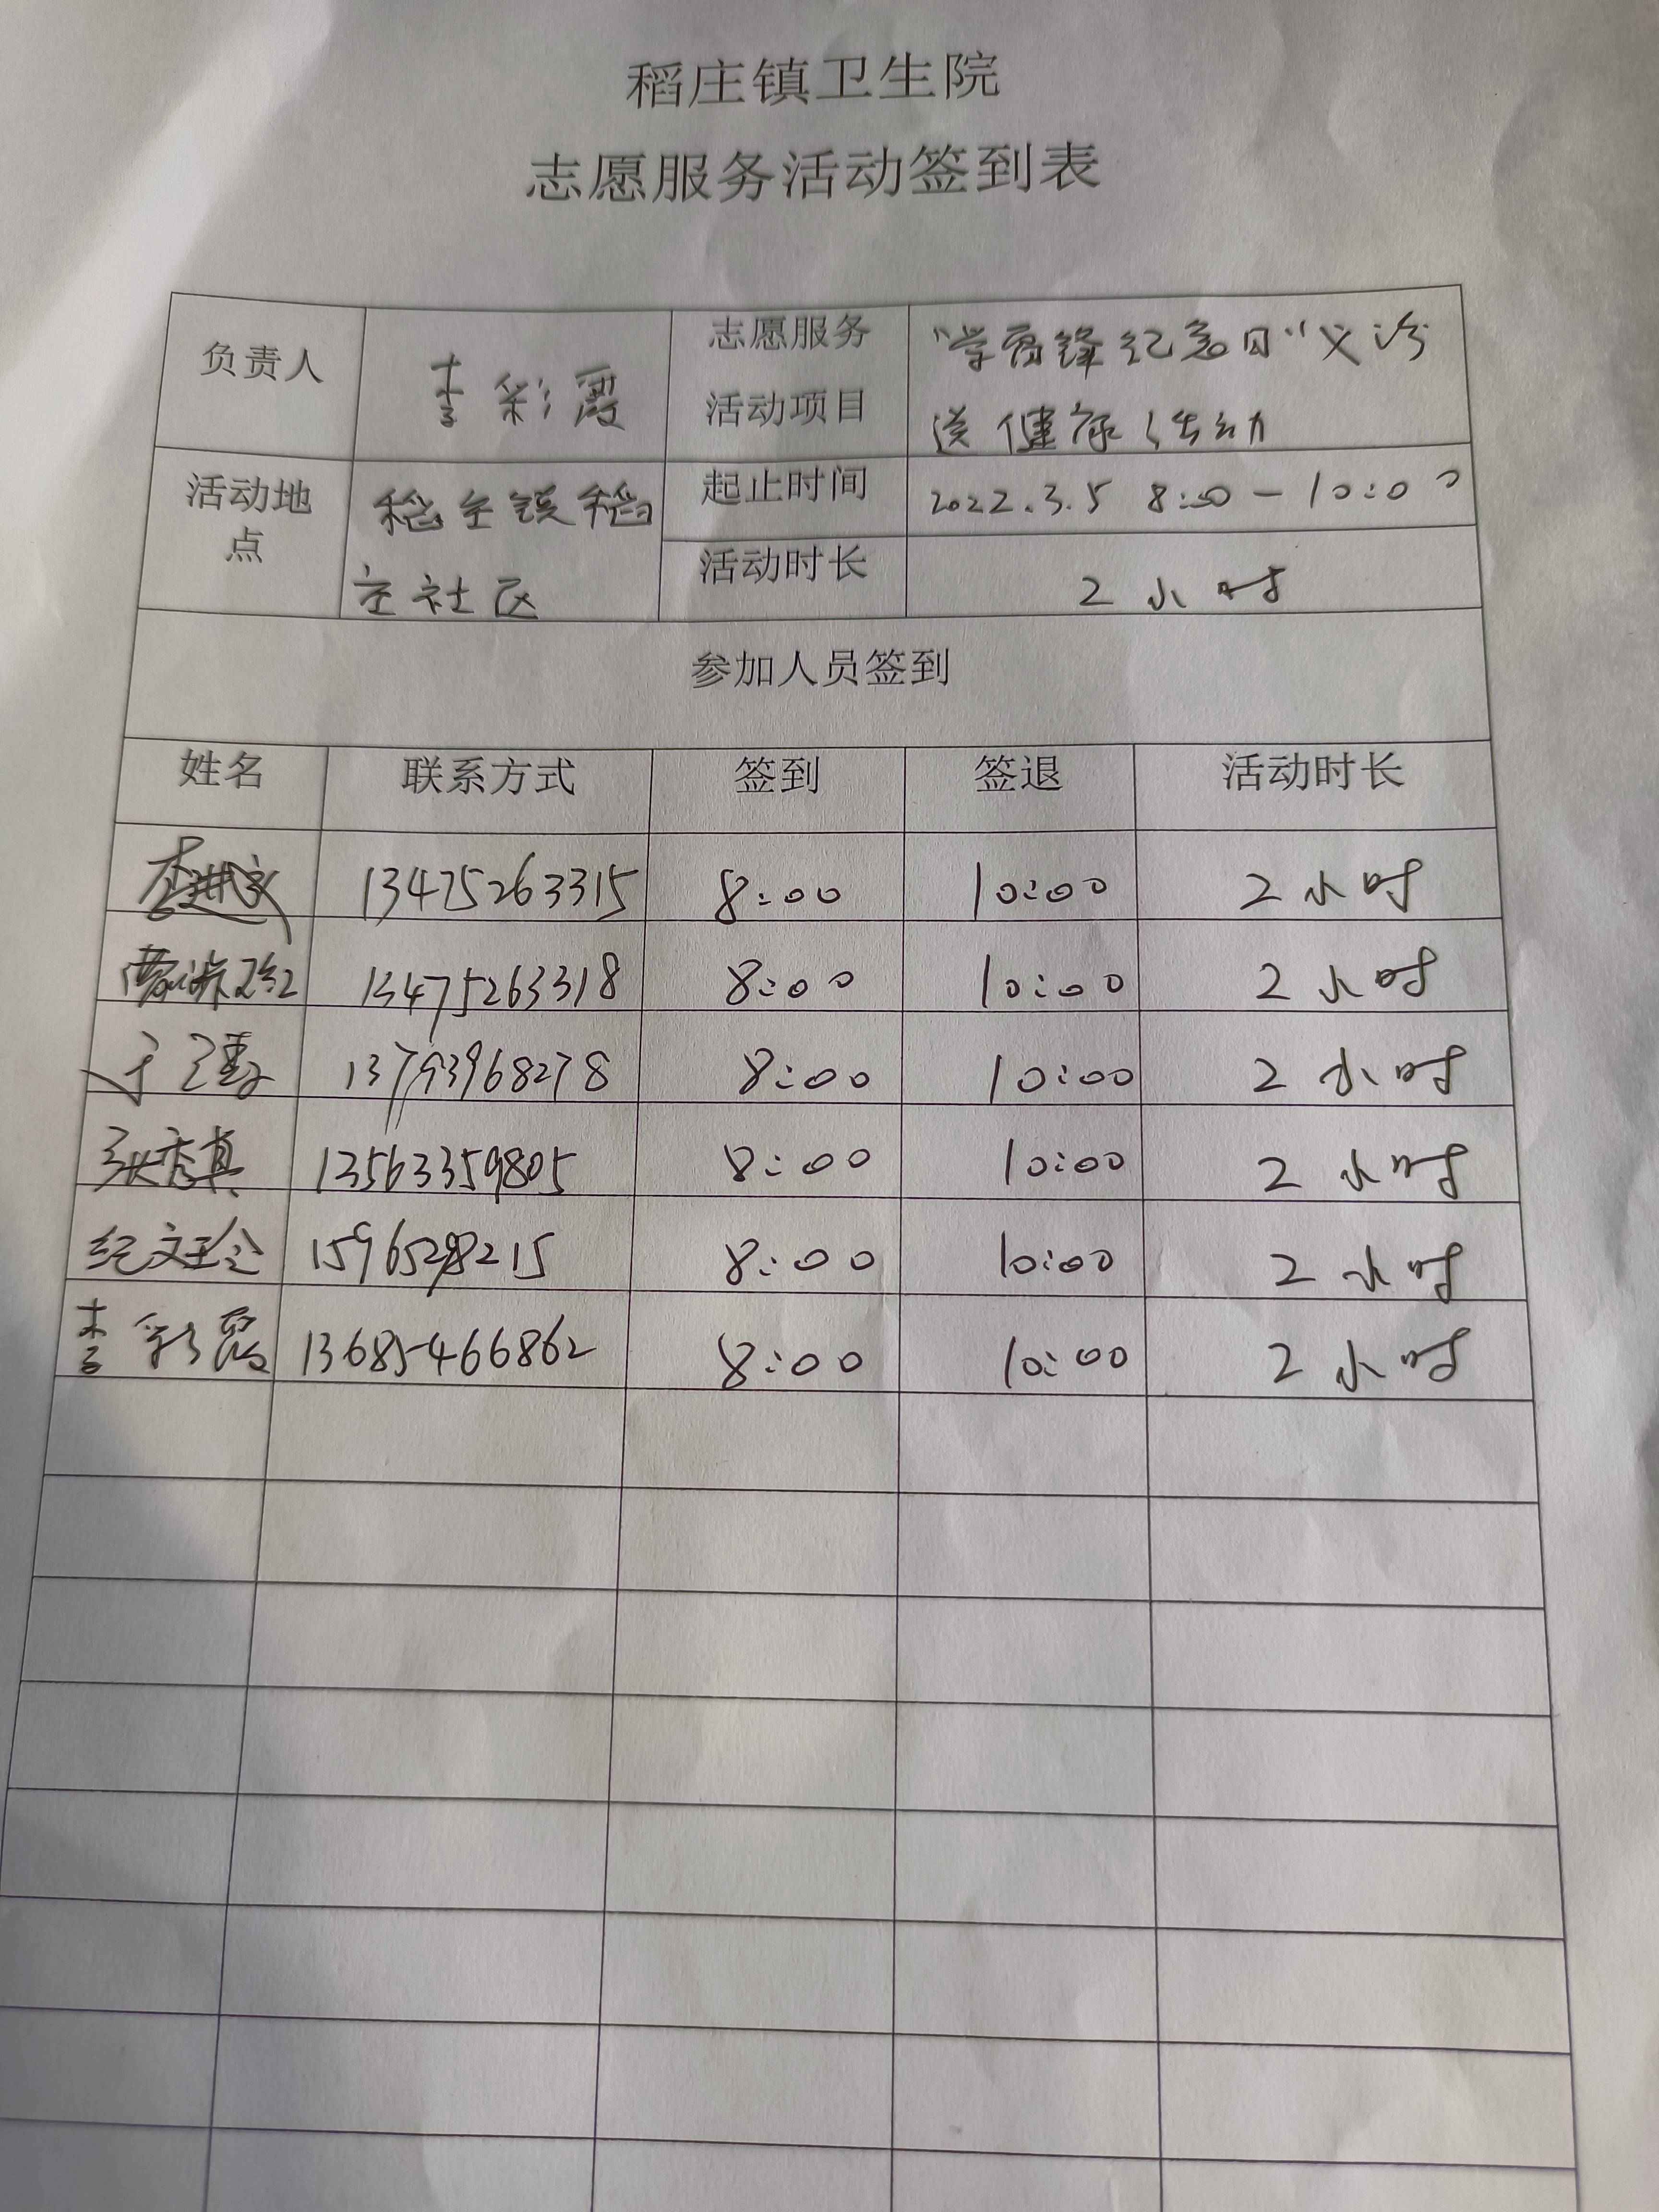 稻庄镇卫生院
志愿服务活动签到表
负责人 李彩霞 志愿服务 "学雷锋纪念日"义诊
活动项目 送健康活动
活动地 稻庄镇稻 起止时间 2022.3.5 8:00-10:00
点 庄社区 活动时长 2小时
参加人员签到
姓名 联系方式 签到 签退 活动时长
13475263315 8:00 10:00 2小时
13475263318 8:00 10:00 2小时
于 13793968278 8:00 10:00 2小时
张秀真 13563359805 8:00 10:00 2小时
纪文玲 8:00 10:00 2小时
李彩霞 13685466862 8:00 10:00 2小时